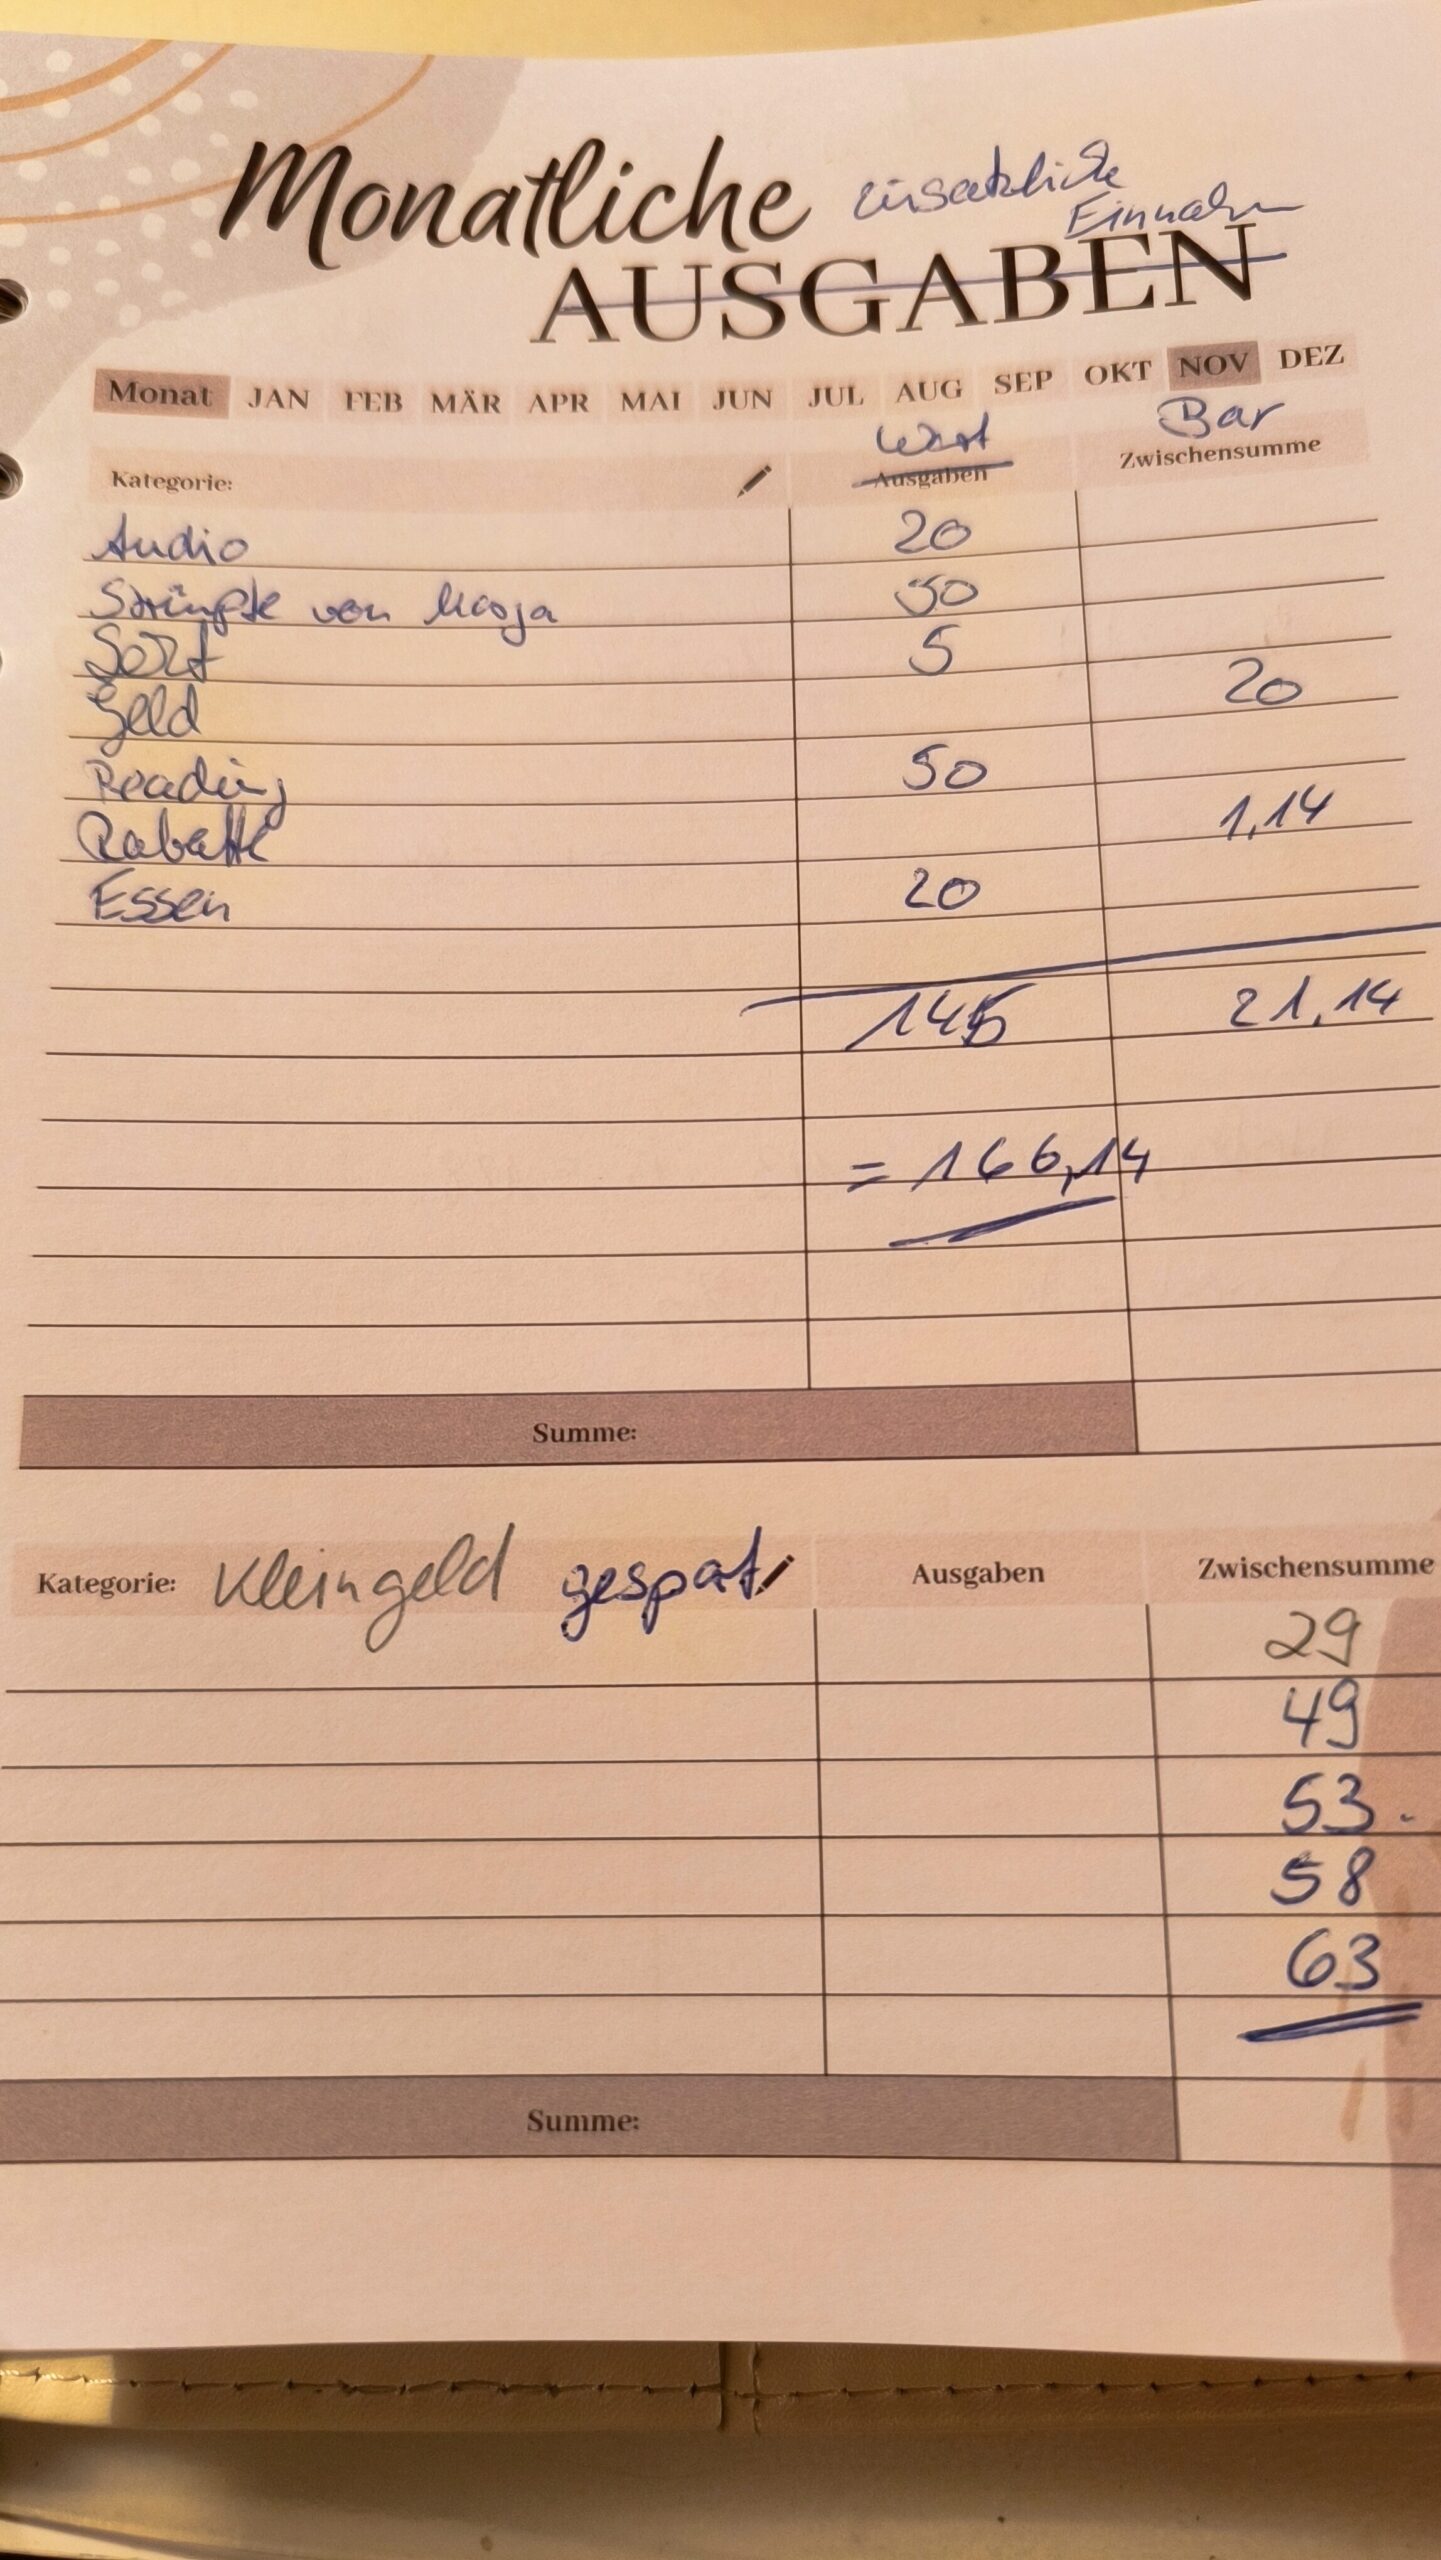 Monatliche zusätzliche
Einnahm
AUSGABEN
Monat JAN FEB MÄR APR MAI JUN JUL AUG SEP OKT NOV DEZ
Wert Bar
Kategorie: Ausgaben Zwischensumme
Audio 20
Strümpfe von 50
5
Geld 20
Reading 50
Rabatte 1,14
Essen 20
145 21,14
= 166,14
Summe:
Kategorie: Kleingeld gespat Ausgaben Zwischensumme
29
49
53.
58
63
Summe: